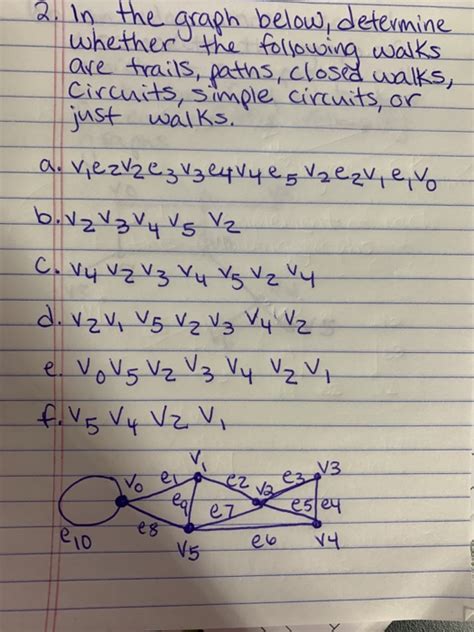 2. In the graph below, determine
whether the following walks
are trails, paths, closed walks,
circuits, simple circuits, or
just walks.
a. v₁e₂v₂e₃v₃e₄v₄e₅v₂e₂v₁e₁v₀
b. v₂v₃v₄v₅v₂
c. v₄v₂v₃v₄v₅v₂v₄
d. v₂v₁v₅v₂v₃v₄v₂
e. v₀v₅v₂v₃v₄v₂v₁
f. v₅v₄v₂v₁
v₁ v3
v₀ e₁ e2 v2 e3
e9 e7 e5 e4
e10 e8 v5 e6 v4